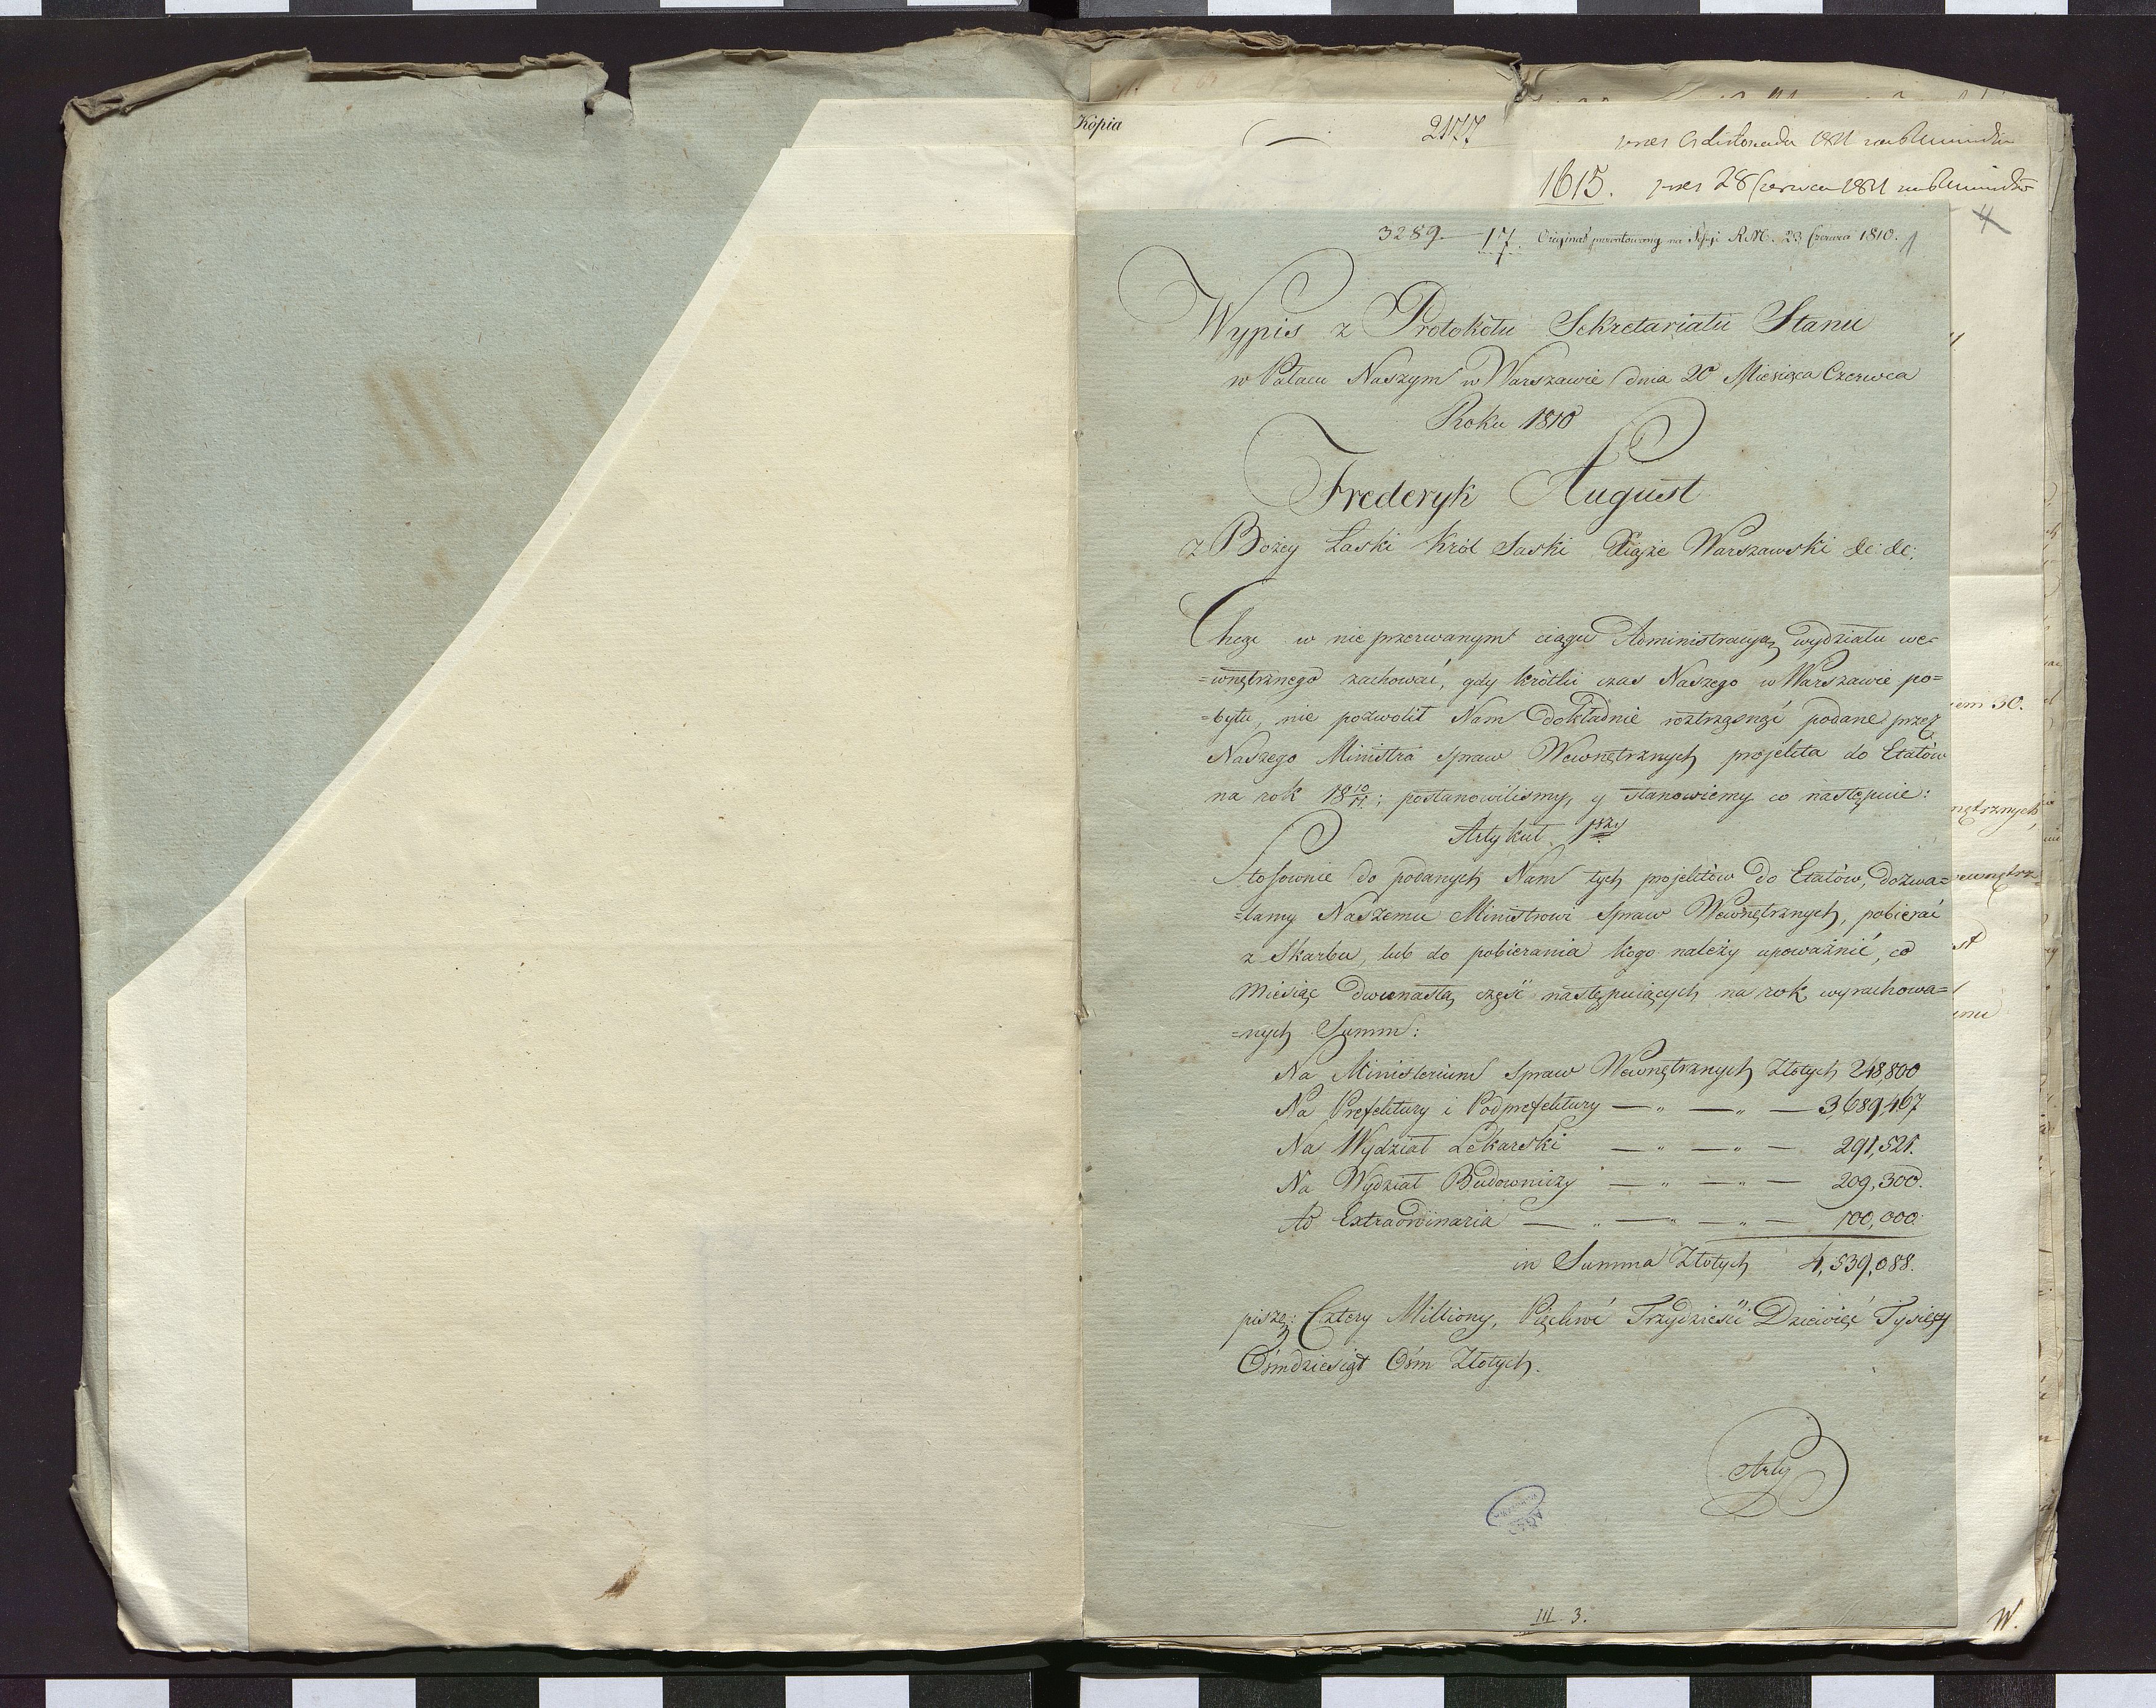 Kopia
2177
1615. 28 Czerwca 1811
4
3289. 17. Originał prezentowany na Sessyi R.M. 23 Czerwca 1810. 1
Wypis z Protokółu Sekretariatu Stanu
w Pałacu Naszym w Warszawie dnia 20 Miesiąca Czerwca
Roku 1810
Frederyk August
z Bożey Łaski Król Saski Xiąże Warszawski &c: &c:
Chcąc w nieprzerwanym ciągu Administracyą wydziału we-
=wnętrznego zachować, gdy krótki czas Naszego w Warszawie po=
=bytu, nie pozwolił Nam dokładnie roztrząsnąć podane przez
Naszego Ministra Spraw Wewnętrznych projekta do Etatów
na rok 18 10/11; postanowiliśmy, y stanowiemy co następuie:
Artykuł 1wszy
Stosownie do podanych Nam tych projektów do Etatów, dozwa=
=lamy Naszemu Ministrowi Spraw Wewnętrznych, pobierać
z Skarbu, lub do pobierania kogo należy upoważnić, co
Miesiąc dwunastą część następuiących na rok wyrachowa=
=nych Summ:
Na Ministerium Spraw Wewnętrznych Złotych 248,800
Na Prefektury i Podprefektury — „ — „ — 3,689,467
Na Wydział Lekarski — „ — „ — 291,521.
Na Wydział Budowniczy — „ — „ — 209,300.
Ad Extraordinaria — „ — „ — „ — 100,000.
in Summa Złotych 4,539,088.
piszę: Cztery Milliony, Pięćkroć Trzydzieści Dziewięć Tysięcy
Ośmdziesiąt Ośm Złotych.
Arty
AGAD
III 3.
W.
iem 30.
nętrznych
ewnętrz-